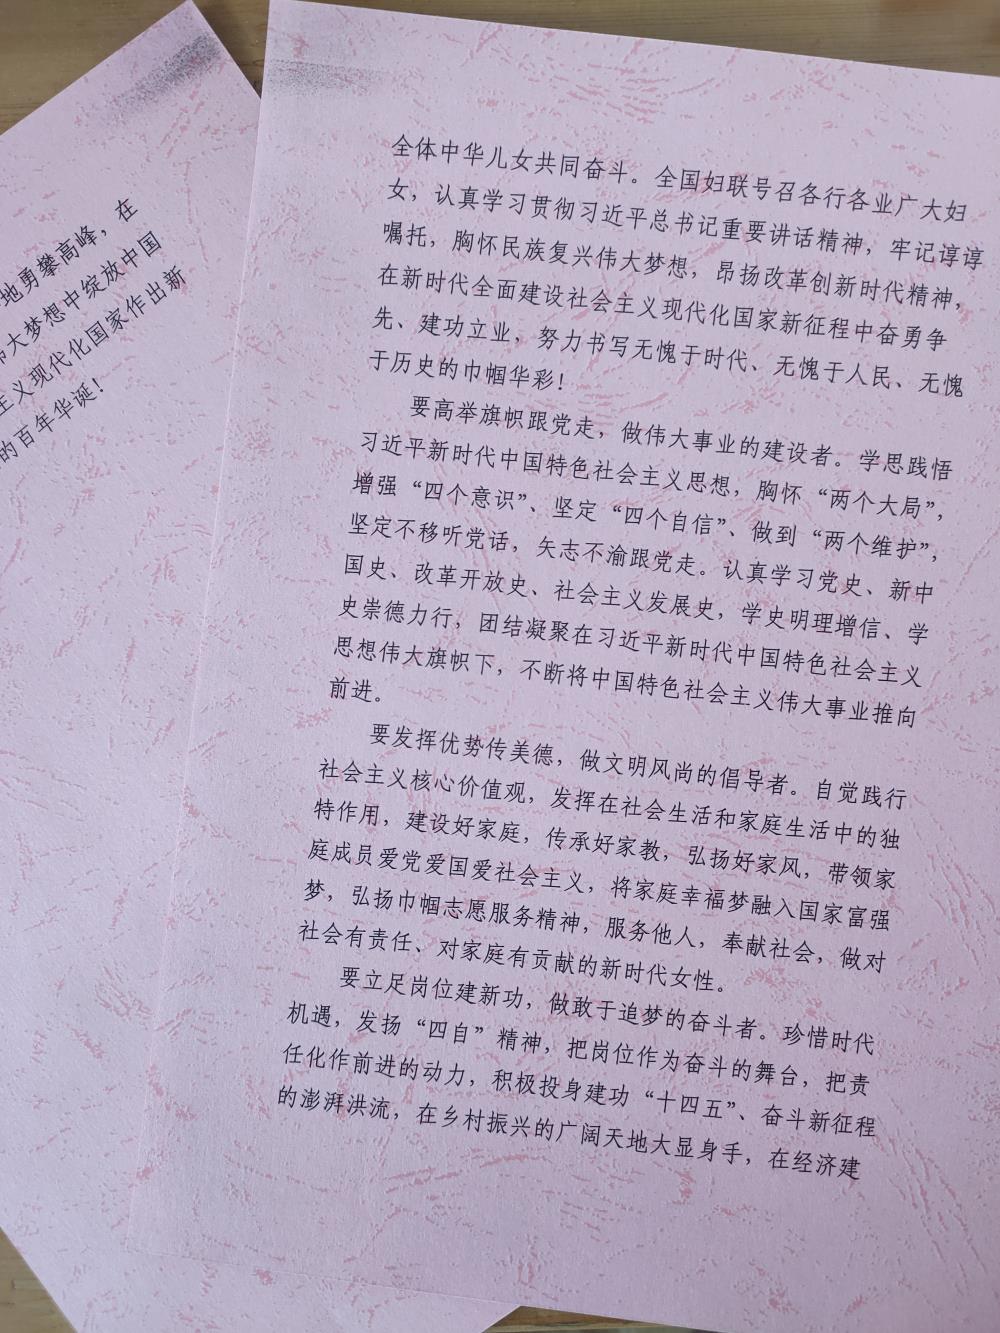 全体中华儿女共同奋斗。全国妇联号召各行各业广大妇
女，认真学习贯彻习近平总书记重要讲话精神，牢记谆谆
嘱托，胸怀民族复兴伟大梦想，昂扬改革创新时代精神，
在新时代全面建设社会主义现代化国家新征程中奋勇争
先、建功立业，努力书写无愧于时代、无愧于人民、无愧
于历史的巾帼华彩！
要高举旗帜跟党走，做伟大事业的建设者。学思践悟
习近平新时代中国特色社会主义思想，胸怀“两个大局”，
增强“四个意识”、坚定“四个自信”、做到“两个维护”，
坚定不移听党话，矢志不渝跟党走。认真学习党史、新中
国史、改革开放史、社会主义发展史，学史明理增信、学
史崇德力行，团结凝聚在习近平新时代中国特色社会主义
思想伟大旗帜下，不断将中国特色社会主义伟大事业推向
前进。
要发挥优势传美德，做文明风尚的倡导者。自觉践行
社会主义核心价值观，发挥在社会生活和家庭生活中的独
特作用，建设好家庭，传承好家教，弘扬好家风，带领家
庭成员爱党爱国爱社会主义，将家庭幸福梦融入国家富强
梦，弘扬巾帼志愿服务精神，服务他人，奉献社会，做对
社会有责任、对家庭有贡献的新时代女性。
要立足岗位建新功，做敢于追梦的奋斗者。珍惜时代
机遇，发扬“四自”精神，把岗位作为奋斗的舞台，把责
任化作前进的动力，积极投身建功“十四五”、奋斗新征程
的澎湃洪流，在乡村振兴的广阔天地大显身手，在经济建
地勇攀高峰，在
伟大梦想中绽放中国
主义现代化国家作出新
的百年华诞！